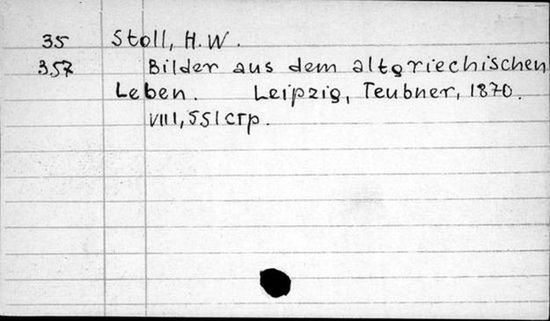 35 Stoll, H.W.
357 Bilder aus dem altgriechischen
Leben. Leipzig, Teubner, 1870.
VIII, 551 стр.